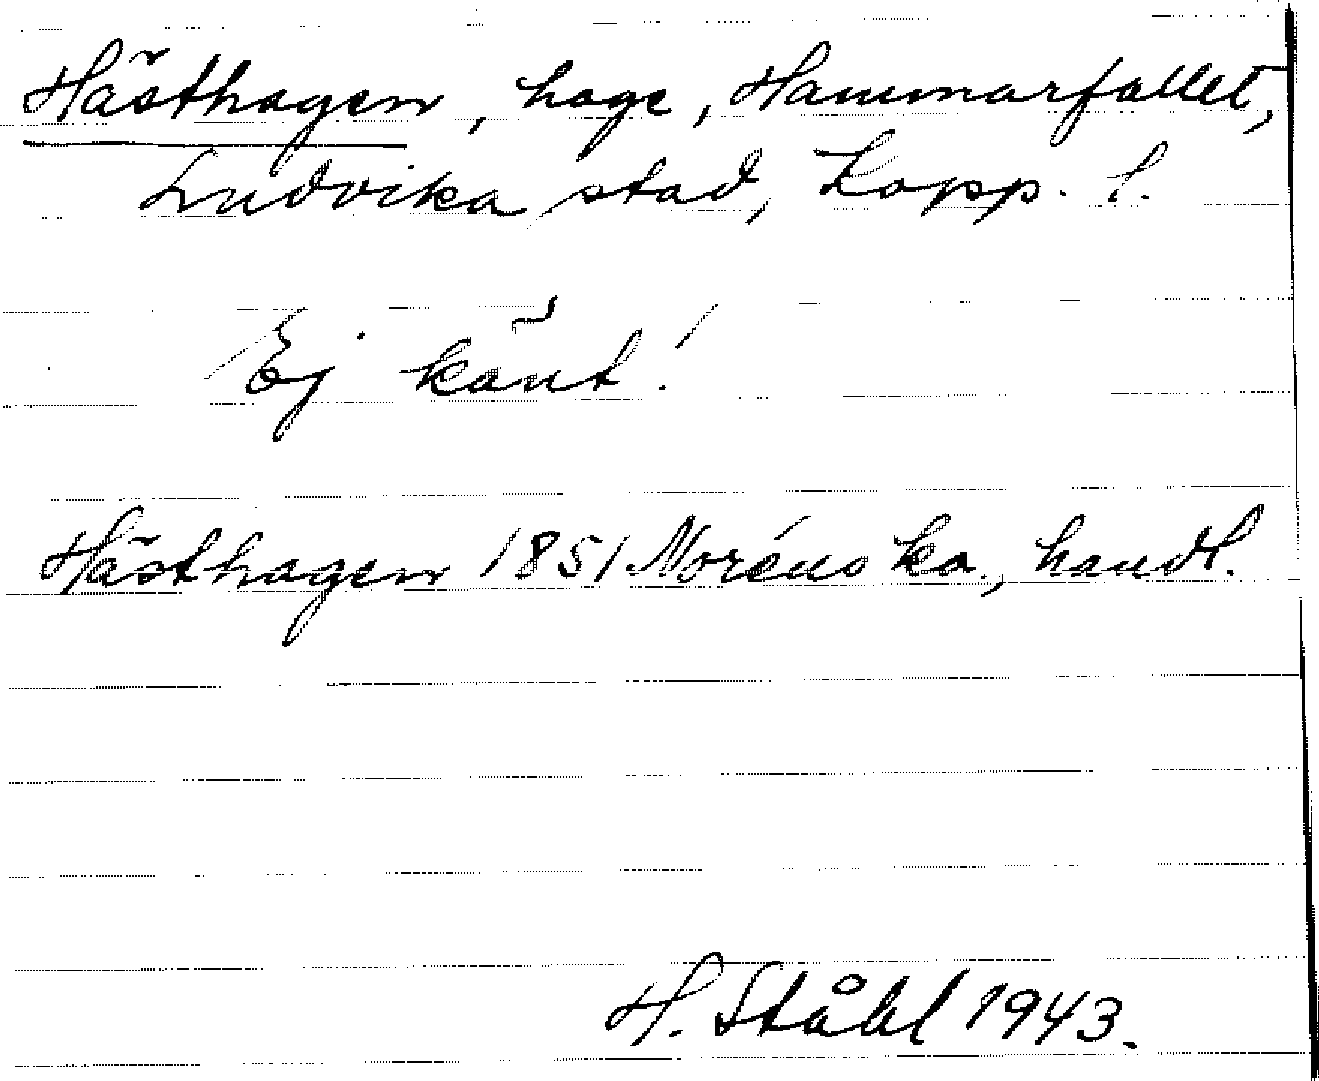 Hästhagen, hage, Hammarfallet,
Ludvika stad, Kopp. l.
Ej känt!
Hästhagen 1851 Noréns ka., handl.
H. Ståhl 1943.